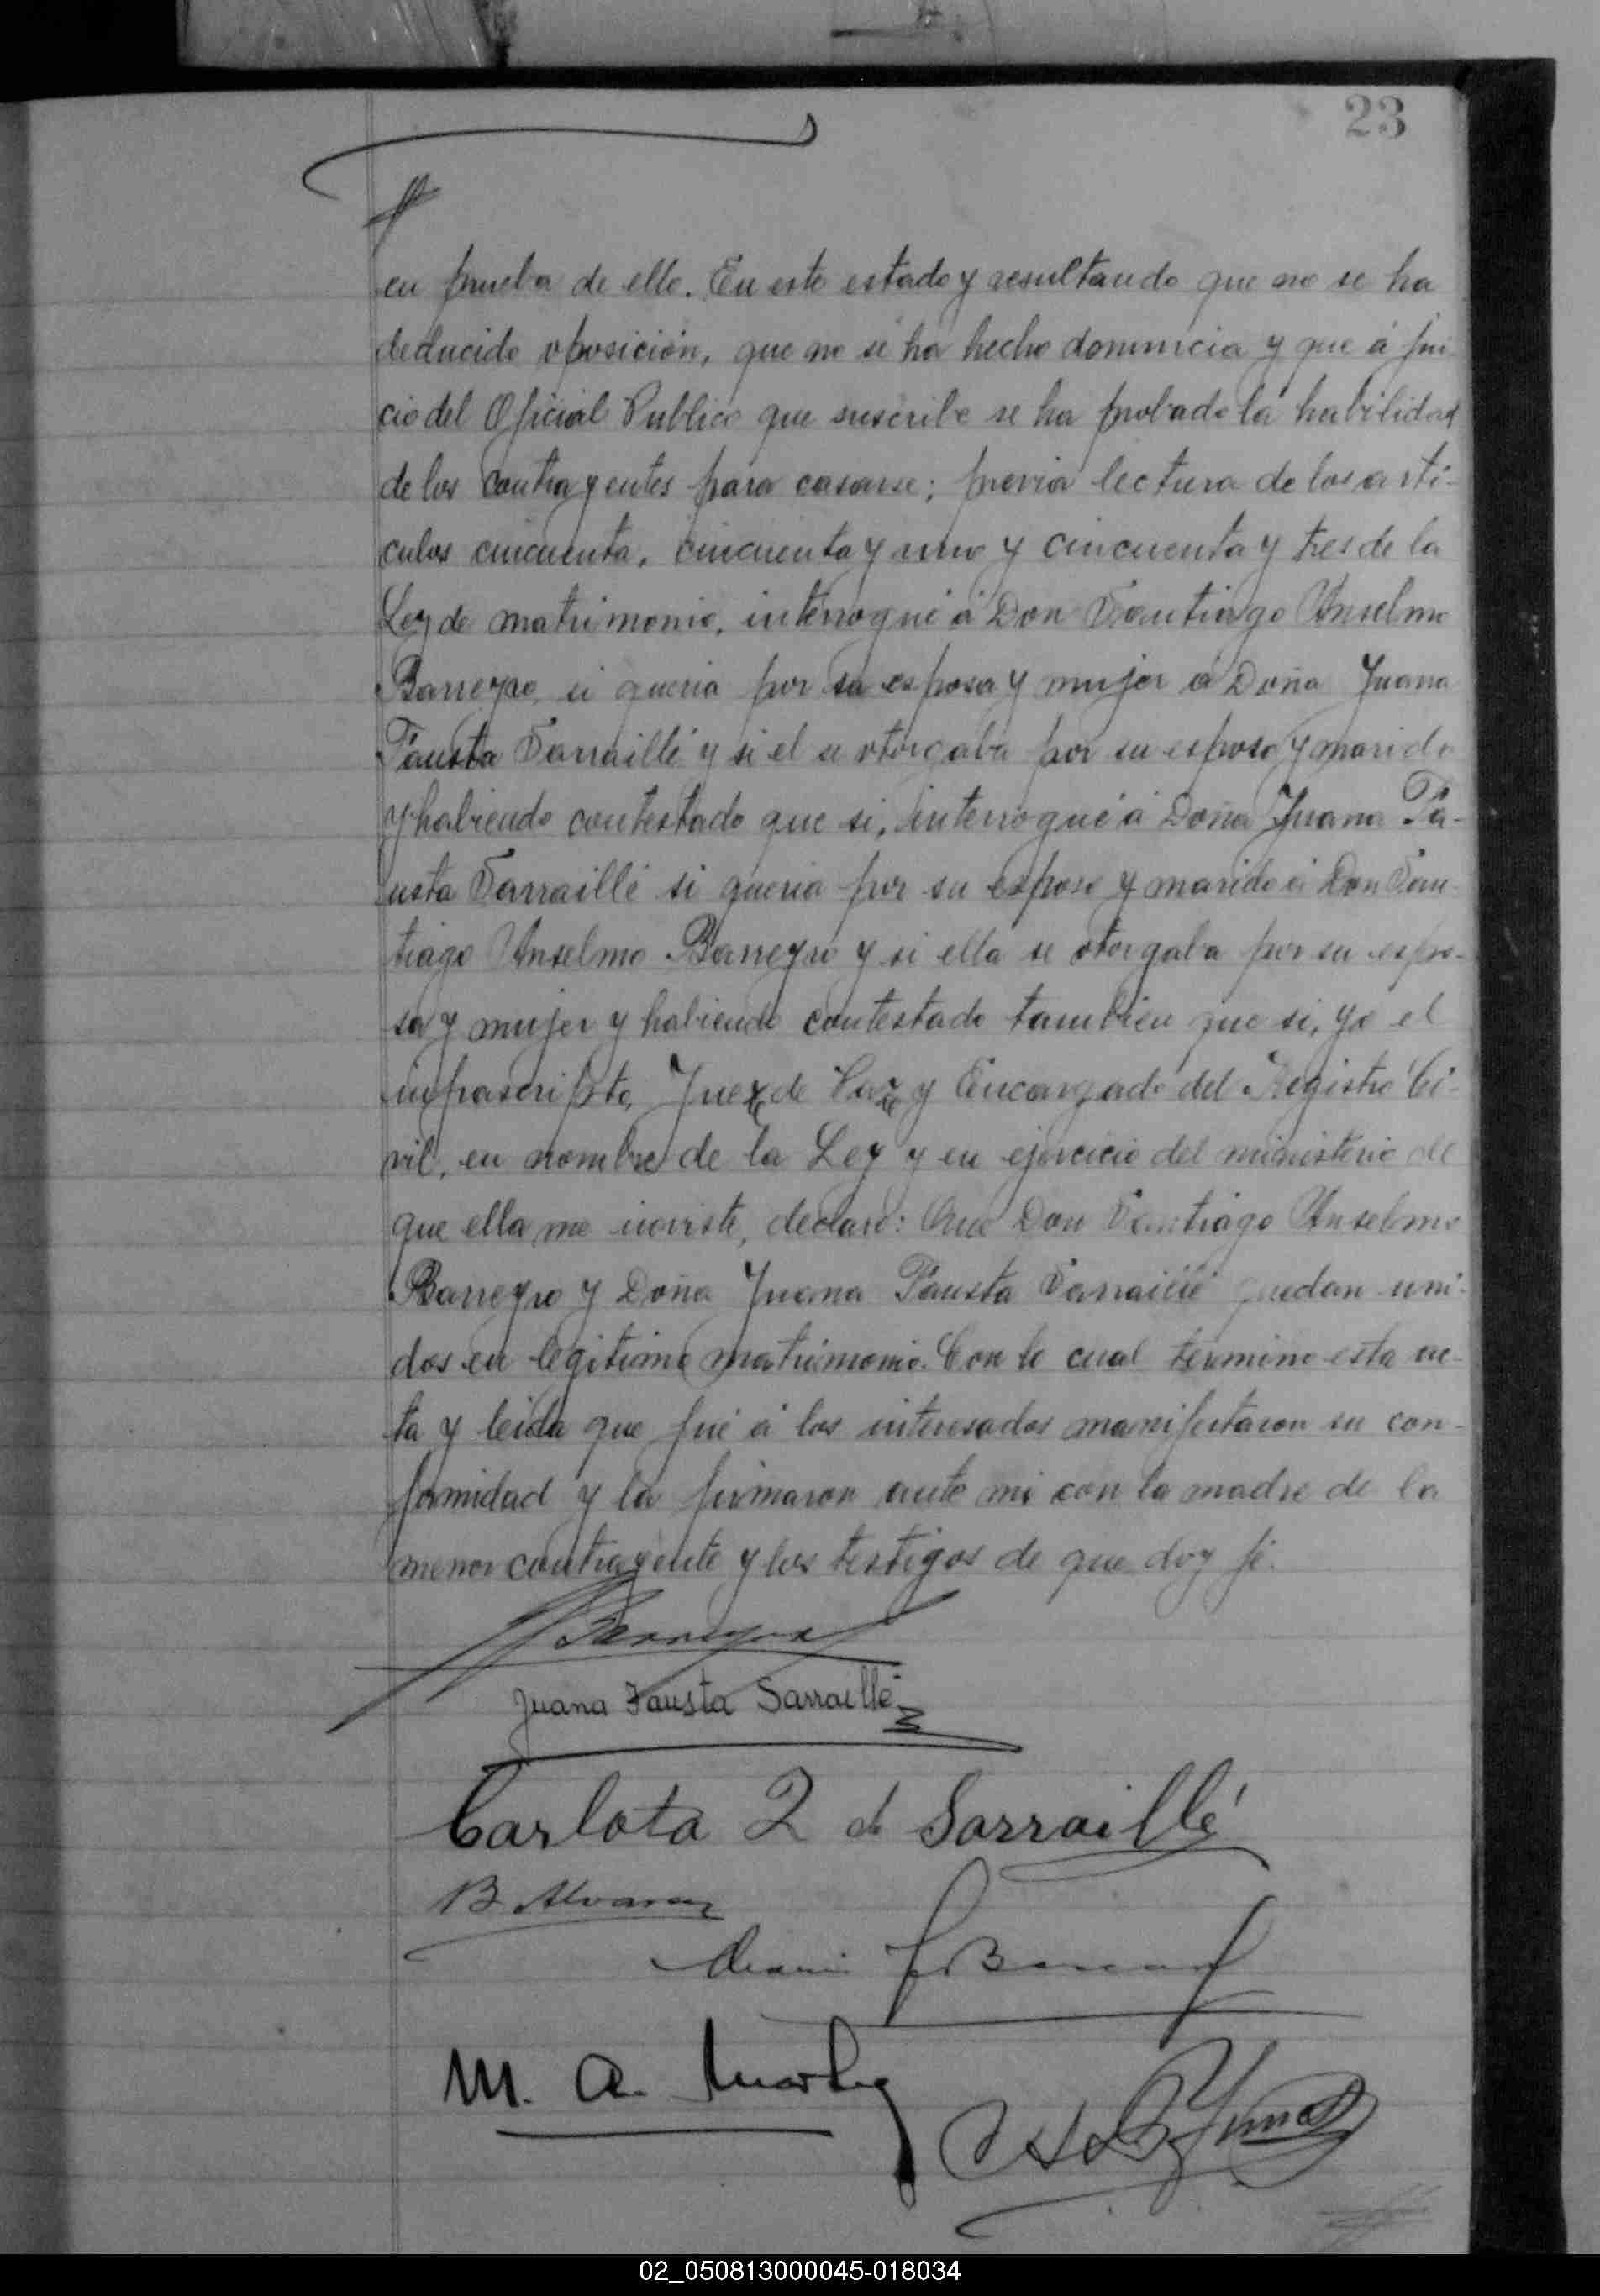 23
en prueba de ello. En este estado y resultando que no se ha
deducido oposición, que no se ha hecho donuncia y que á jui
cio del Oficial Publico que suscribe se ha probado la habilidad
de los contrayentes para casarse; previa lectura de los artí-
culos cincuenta, cincuenta y uno y cincuenta y tres de la
Ley de matrimonio, interrogué á Don Santiago Anselmo
Barreyro, si queria por su esposa y mujer á Doña Juana
Fausta Sarraillé y si el se otorgaba por su esposo y marido
y habiendo contestado que si, interrogué á Doña Juana Fa-
usta Sarraillé si queria por su esposo y marido á Don San-
tiago Anselmo Barreyro y si ella se otorgaba por su espo-
sa y mujer y habiendo contestado tambien que si, yo el
infrascripto, Juez de Paz y Encargado del Registro Ci-
vil, en nombre de la Ley y en ejercicio del ministerio de
que ella me inviste, declaro: Que Don Santiago Anselmo
Barreyro y Doña Juana Fausta Sarraillé quedan uni-
dos en legitimo matrimonio. Con lo cual termino esta ac-
ta y leida que fué á los interesados manifestaron su con-
formidad y la firmaron ante mi con la madre de la
menor contrayente y los testigos de que doy fé.
Barreyro
Juana Fausta Sarraillé
Carlota Z de Sarraillé
B. Alvarez
M. A.
02_050813000045-018034